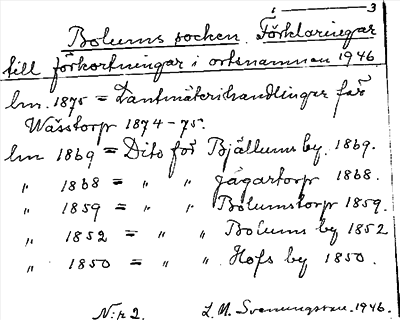 1 — 3
Bolums socken. Förklaringar
till förkortningar i ortsnamnen 1946
lm. 1875 = Lantmäterihandlingar för
Wässtorp 1874-75.
lm 1869 = Dito för Bjällums by. 1869.
„ 1868 = „ „ Jägartorp 1868.
„ 1859 = „ „ Bolumstorp 1859.
„ 1852 = „ „ Bolums by 1852
„ 1850 = „ „ Hofs by 1850.
N:r 2. L. N. Svenungsson. 1946.